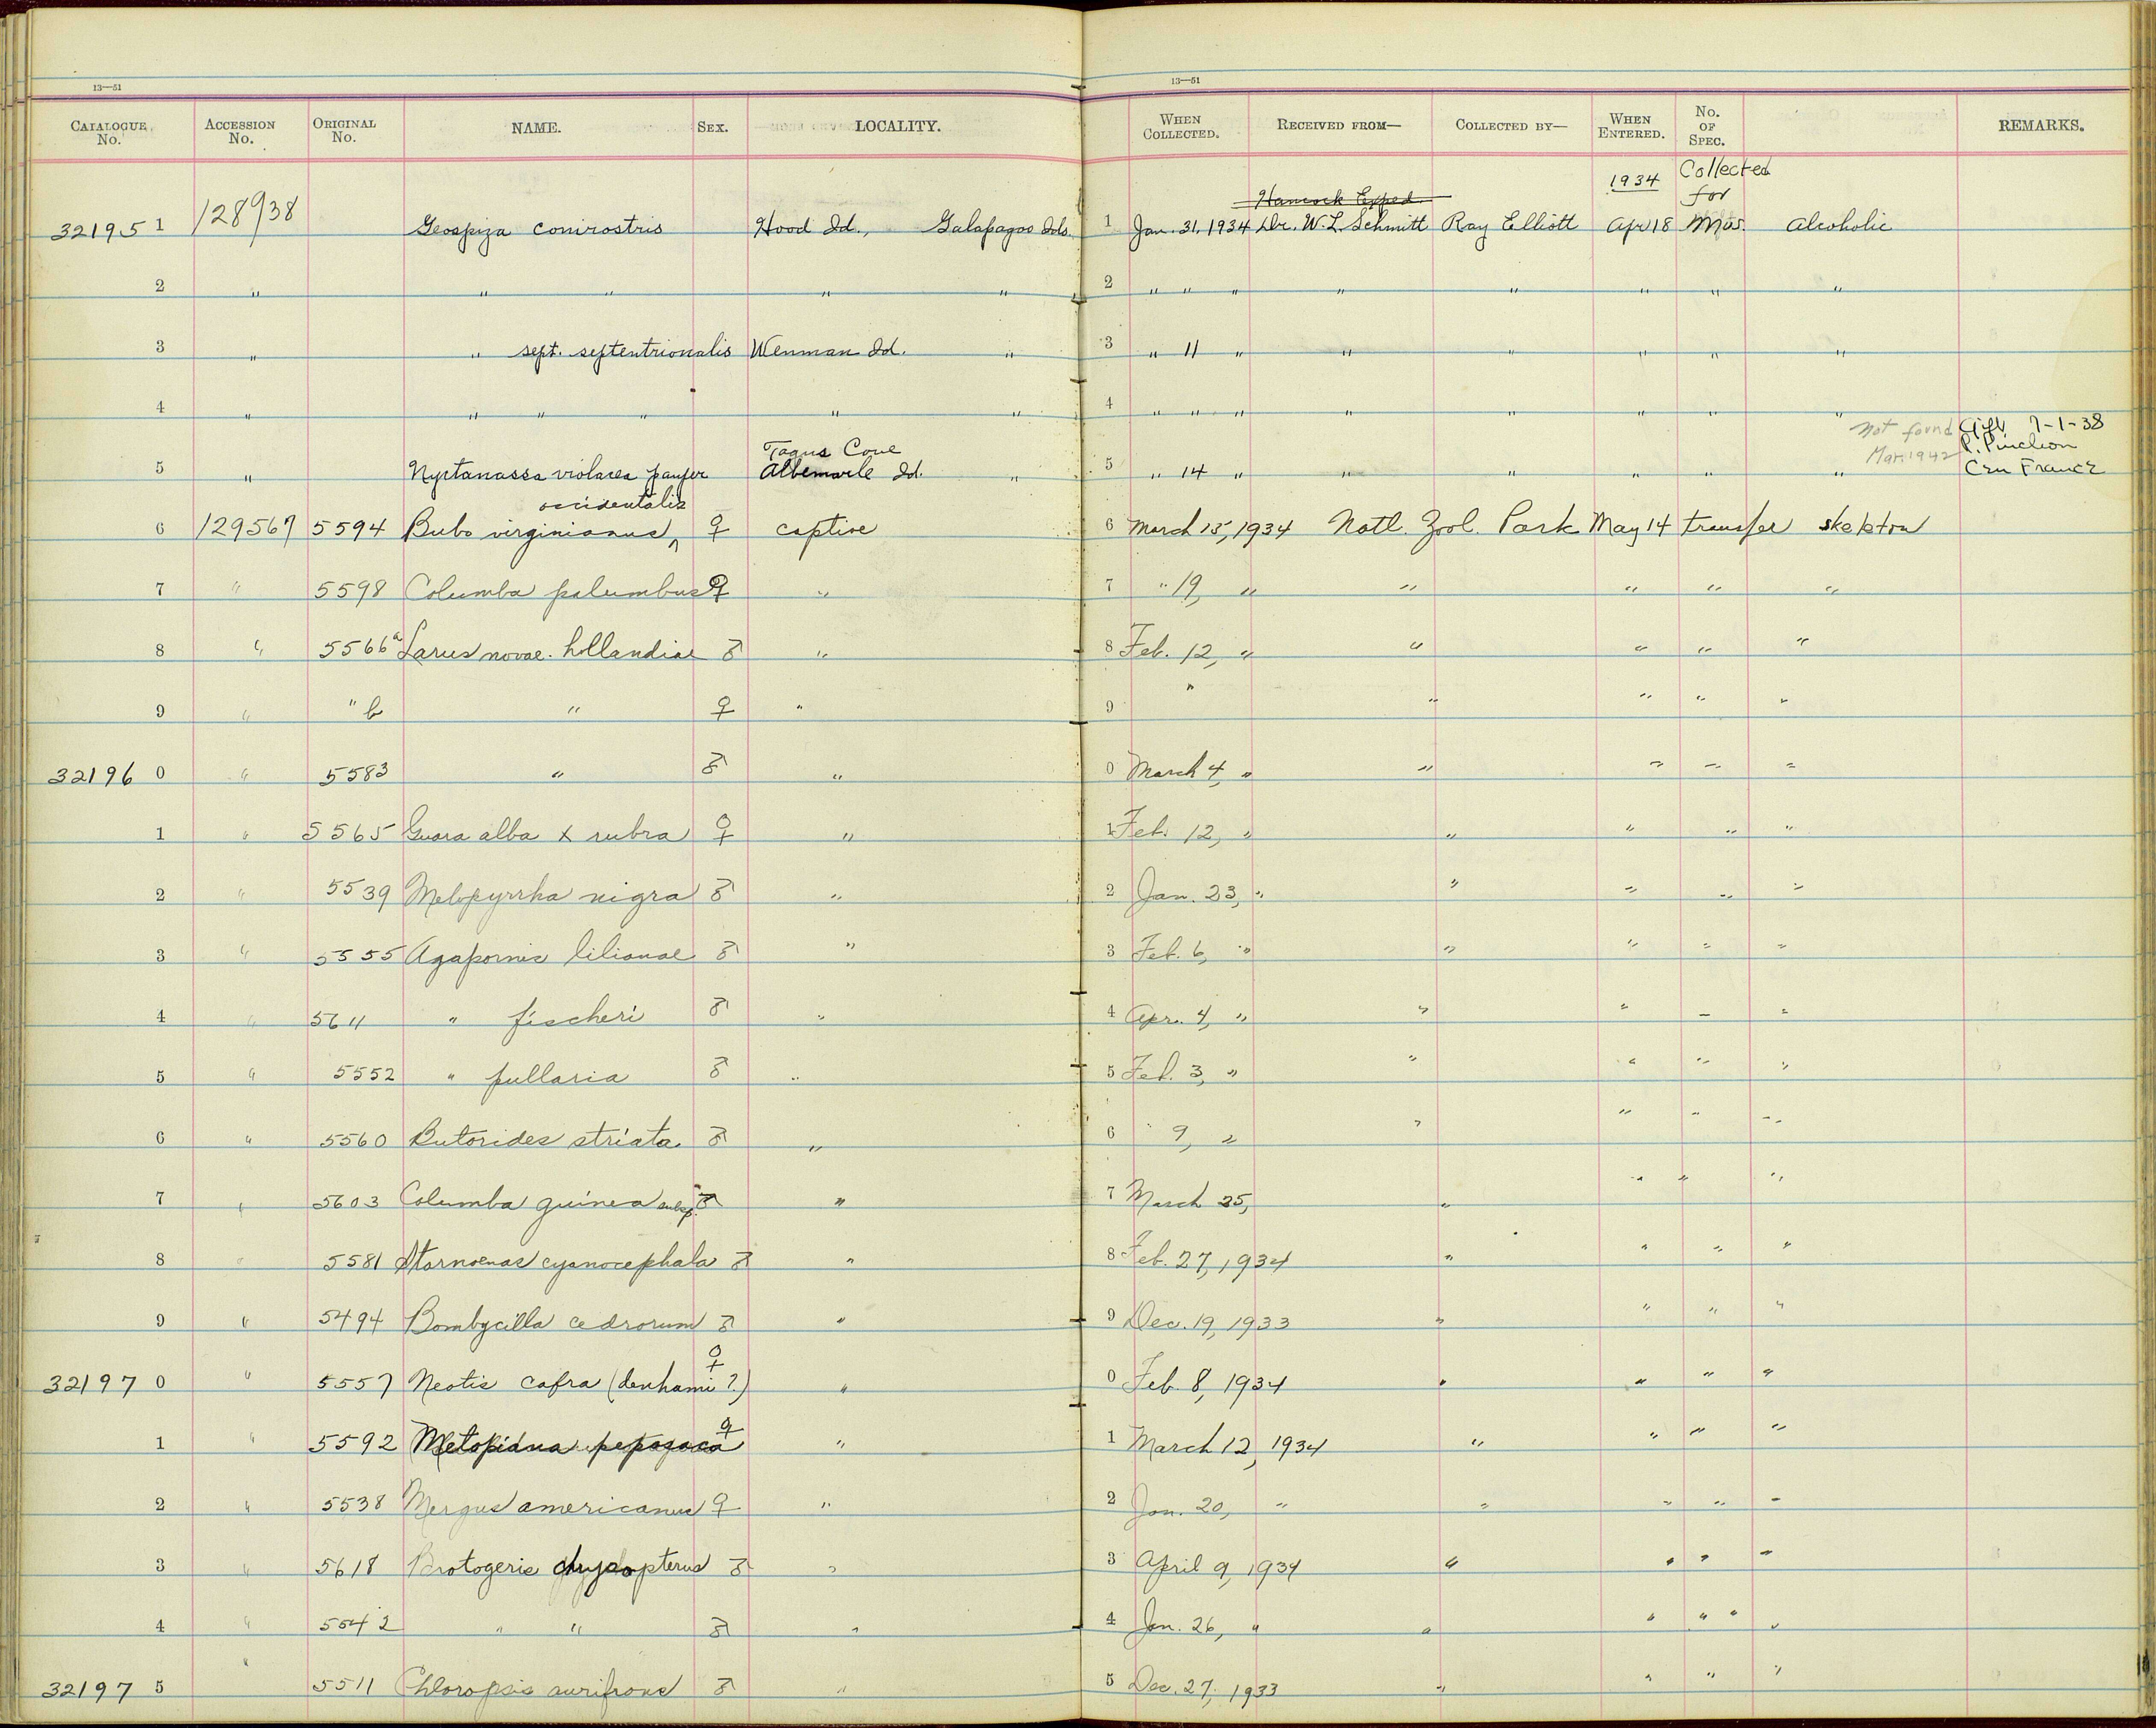 13—51 13—51
CATALOGUE No. ACCESSION No. ORIGINAL No. NAME. SEX. LOCALITY. WHEN COLLECTED. RECEIVED FROM— COLLECTED BY— WHEN ENTERED. No. OF SPEC. REMARKS.
Hancock Exped. 1934 Collected for
32195 1 128938 Geospiza conirostris Hood Id., Galapagos Ids. 1 Jan. 31, 1934 Dr. W. L. Schmitt Ray Elliott Apr 18 Mus. Alcoholic
2 " " " " " 2 " " " " " " " "
3 " " sept. septentrionalis Wenman Id. " 3 " 11 " " " " " "
4 " " " " " " 4 " " " " " " " "
Tagus Cove Not found Mar. 1942 Gift 7-1-38
5 " Nyctanassa violacea pauper Albemarle Id. " 5 " 14 " " " " " " R. Pinchon Cen France
occidentalis
6 129567 5594 Bubo virginianus ^ ♀ captive 6 March 15, 1934 Natl. Zool. Park May 14 transfer skeleton
7 " 5598 Columba palumbus ♀ " 7 " 19, " " " " "
8 " 5566a Larus novae. hollandiae ♂ " 8 Feb. 12, " " " " "
9 " " b " ♀ " 9 " " " " "
32196 0 " 5583 " ♂ " 0 March 4, " " " " "
1 " 5565 Guara alba x rubra ♀ " 1 Feb. 12, " " " " "
2 " 5539 Melopyrrha nigra ♂ " 2 Jan. 23, " " " " "
3 " 5555 Agapornis lilianae ♂ " 3 Feb. 6, " " " " "
4 " 5611 " fischeri ♂ " 4 Apr. 4, " " " " "
5 " 5552 " pullaria ♂ " 5 Feb. 3, " " " " "
6 " 5560 Butorides striata ♂ " 6 " 9, " " " " "
7 " 5603 Columba guinea subsp. ♂ " 7 March 25, " " " "
8 " 5581 Starnoenas cyanocephala ♂ " 8 Feb. 27, 1934 " " " "
9 " 5494 Bombycilla cedrorum ♂ " 9 Dec. 19, 1933 " " " "
32197 0 " 5557 Neotis cafra (denhami ?) ♀ " 0 Feb. 8, 1934 " " " "
1 " 5592 Metopiana peposaca ♀ " 1 March 12, 1934 " " " "
2 " 5538 Mergus americanus ♀ " 2 Jan. 20, " " " " "
3 " 5618 Brotogeris chrysopterus ♂ " 3 April 9, 1934 " " " "
4 " 5542 " " ♂ " 4 Jan. 26, " " " " "
32197 5 " 5511 Chloropsis aurifrons ♂ " 5 Dec. 27, 1933 " " " "